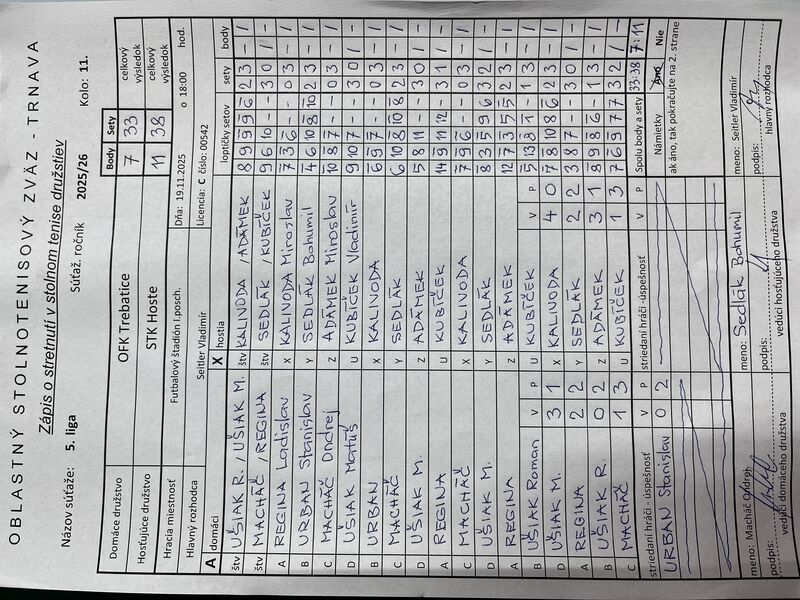 OBLASTNÝ STOLNOTENISOVÝ ZVÄZ - TRNAVA
Zápis o stretnutí v stolnom tenise družstiev
Názov súťaže: 5. liga Súťaž. ročník 2025/26 Kolo: 11.
Body Sety
Domáce družstvo OFK Trebatice 7 33 celkový výsledok
Hosťujúce družstvo STK Hoste 11 38 celkový výsledok
Hracia miestnosť Futbalový štadión I posch. Dňa: 19.11.2025 o 18:00 hod.
Hlavný rozhodca Seitler Vladimír Licencia: C číslo: 00542
A domáci X hostia loptičky setov sety body
štv UŠIAK R. / UŠIAK M. štv KALIVODA / ADÁMEK 8 9 9 9 6 2 3 - 1
štv MACHÁČ / REGINA štv SEDLÁK / KUBÍČEK 9 6 10 - - 3 0 1 -
A REGINA Ladislav X KALIVODA Miroslav 7 3 6 - - 0 3 - 1
B URBAN Stanislav Y SEDLÁK Bohumil 4 6 10 8 10 2 3 - 1
C MACHÁČ Ondrej Z ADÁMEK Miroslav 10 8 7 - - 0 3 - 1
D UŠIAK Matúš U KUBÍČEK Vladimír 9 10 7 - - 3 0 1 -
B URBAN X KALIVODA 6 9 7 - - 0 3 - 1
C MACHÁČ Y SEDLÁK 6 10 8 10 8 2 3 - 1
D UŠIAK M. Z ADÁMEK 5 8 11 - - 3 0 1 -
A REGINA U KUBÍČEK 14 9 11 12 - 3 1 1 -
C MACHÁČ X KALIVODA 7 9 6 - - 0 3 - 1
D UŠIAK M. Y SEDLÁK 8 3 5 9 6 3 2 1 -
A REGINA Z ADÁMEK 12 7 3 5 5 2 3 - 1
B UŠIAK Roman V P U KUBÍČEK V P 5 13 8 1 - 1 3 - 1
D UŠIAK M. 3 1 X KALIVODA 4 0 7 8 10 8 6 2 3 - 1
A REGINA 2 2 Y SEDLÁK 2 2 3 8 7 - - 3 0 1 -
B UŠIAK R. 0 2 Z ADÁMEK 3 1 8 9 8 6 - 1 3 - 1
C MACHÁČ 1 3 U KUBÍČEK 1 3 7 6 9 7 7 3 2 1 -
striedaní hráči -úspešnosť V P striedaní hráči -úspešnosť V P Spolu body a sety 33:38 7:11
URBAN Stanislav 0 2 Námietky Áno Nie
ak áno, tak pokračujte na 2. strane
meno: Macháč Ondrej meno: Sedlák Bohumil meno: Seitler Vladimír
podpis: podpis: podpis:
vedúci domáceho družstva vedúci hosťujúceho družstva hlavný rozhodca